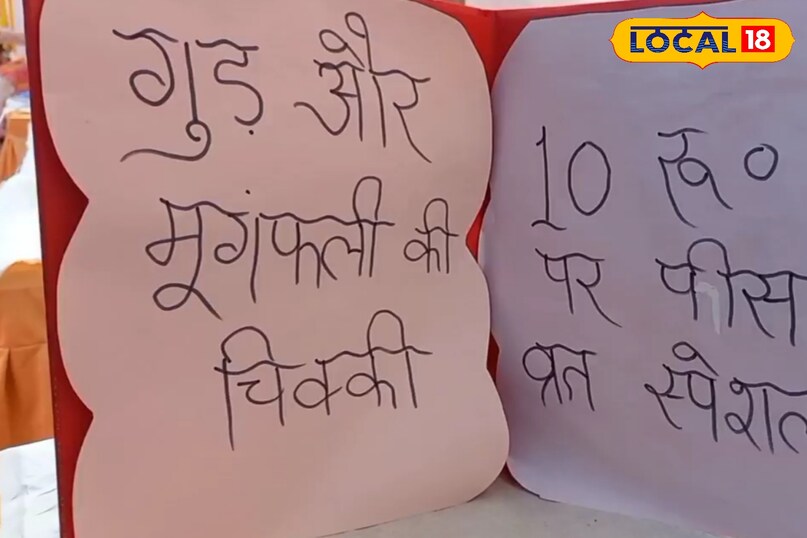 LOCAL 18
गुड़ और
मूगंफली की
चिक्की
10 रू०
पर पीस
व्रत स्पेशल